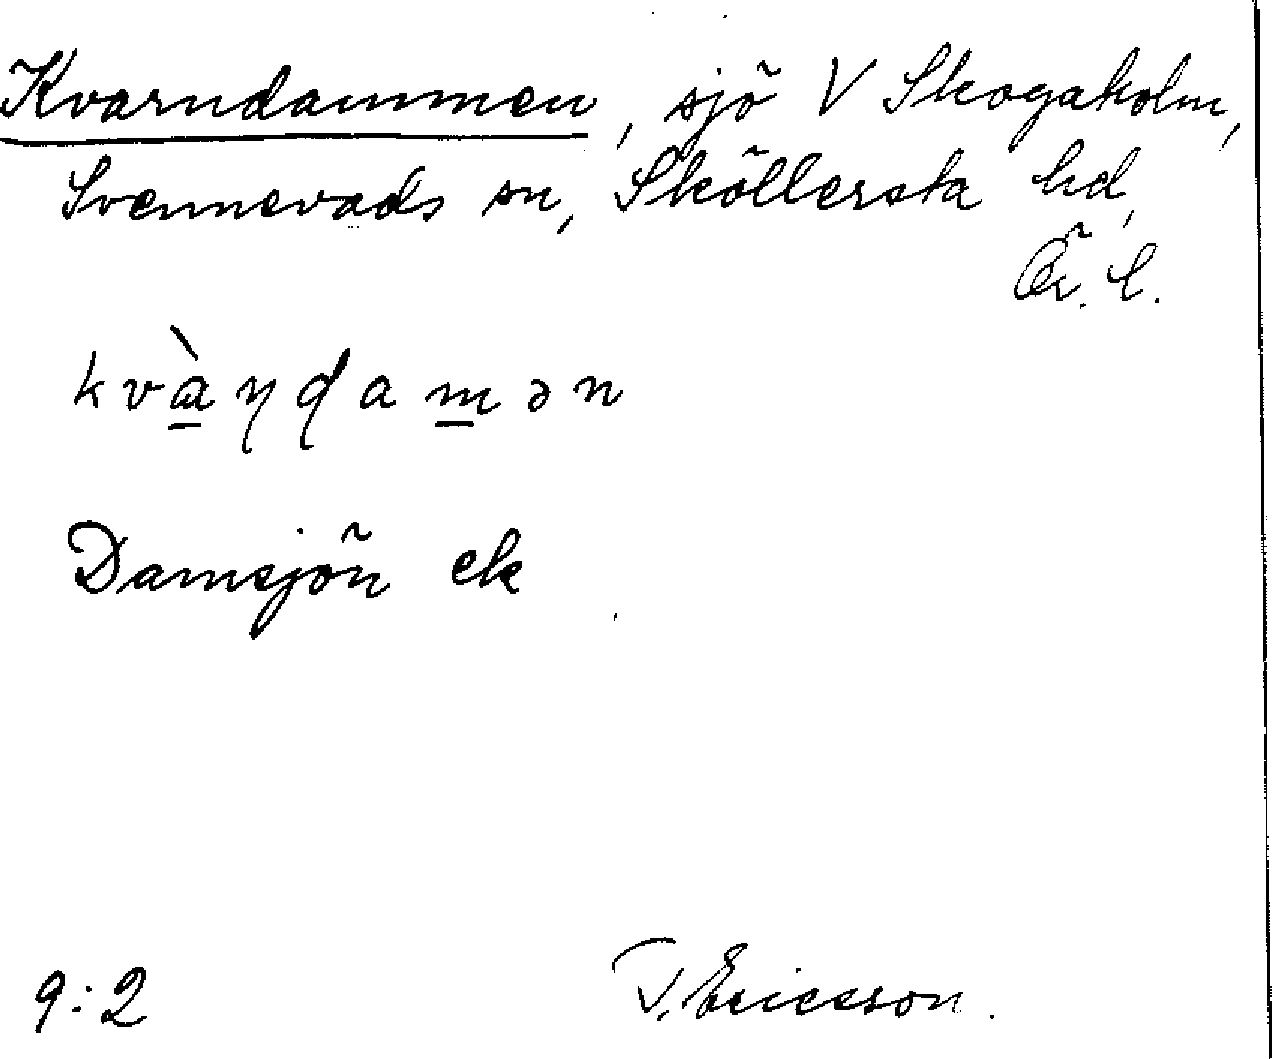 Kvarndammen, sjö V Skogaholm,
Svennevads sn, Sköllersta hd,
Ör. l.
kvà̱ɳɖam̱ən
Damsjön ek
9:2 T. Ericsson.